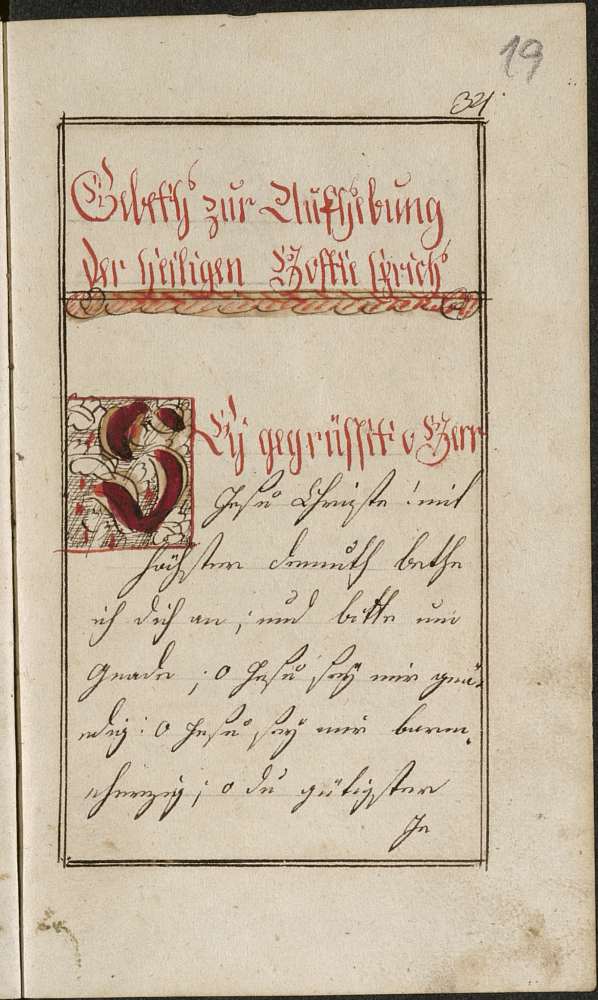 19
31.
Gebeth zur Aufhebung
der heiligen Hostie sprich
SEy gegrüsset o Herr
Jesu Christe! mit
höchster demuth bethe
ich dich an; und bitte um
Gnade; o Jesu sey mir gnä-
edig: o Jesu, sey mir barm-
eherzig; o du gütigster
Je